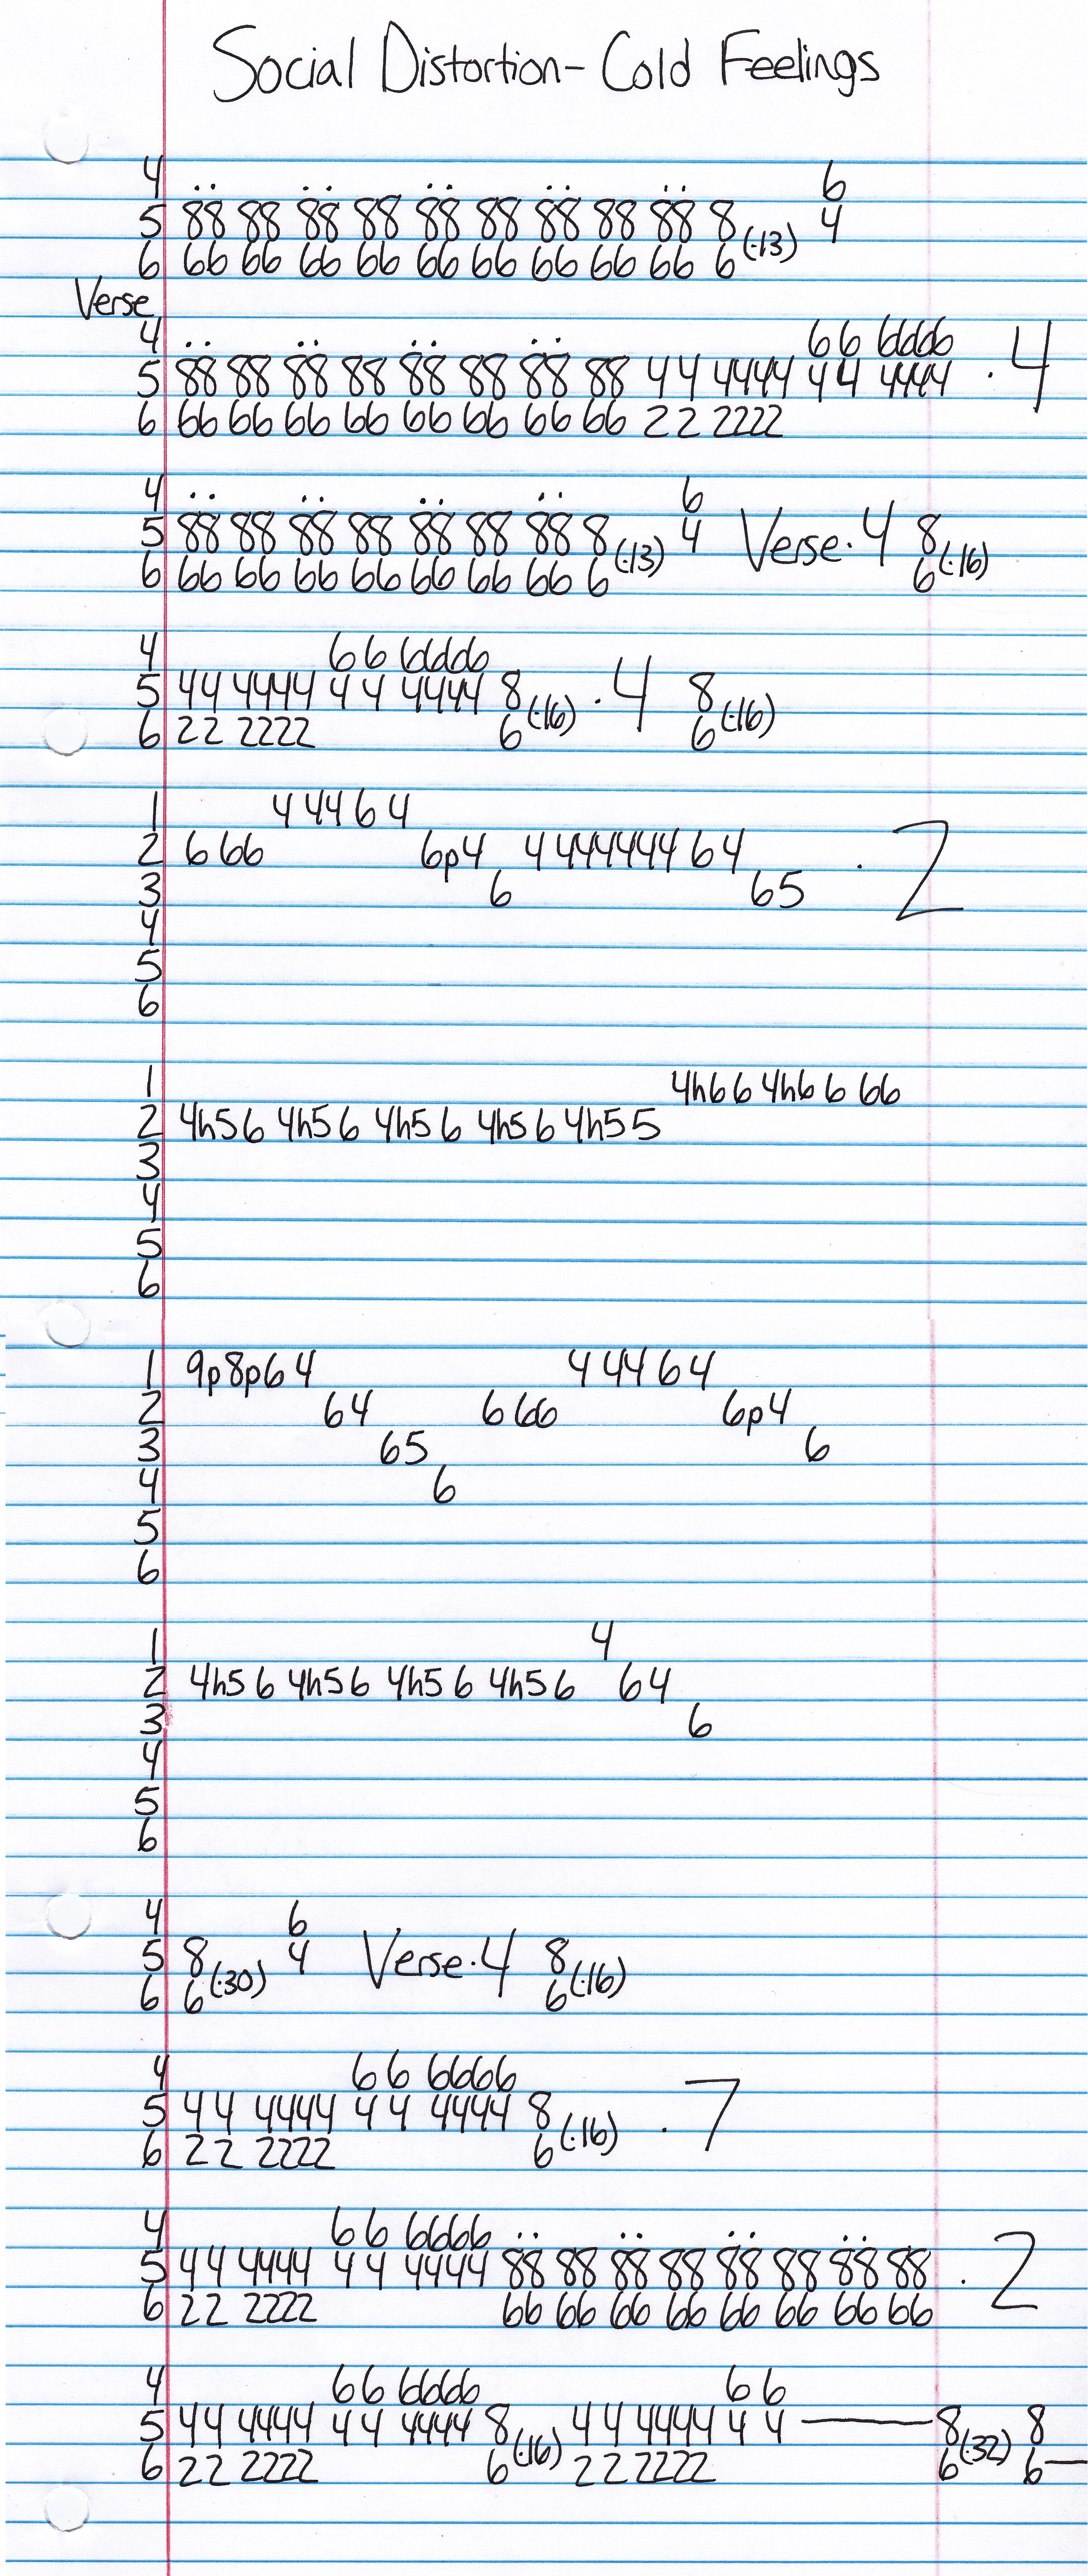 Social Distortion - Cold Feelings
4 .. .. .. .. .. 6
5 88 88 88 88 88 88 88 88 88 8 (·13) 4
6 66 66 66 66 66 66 66 66 66 6
Verse
4 .. .. .. .. 66 6666
5 88 88 88 88 88 88 88 88 44 4444 44 4444 · 4
6 66 66 66 66 66 66 66 66 22 2222
4 .. .. .. .. 6
5 88 88 88 88 88 88 88 8 (·13) 4 Verse·4 8 (·16)
6 66 66 66 66 66 66 66 6 6
4 66 6666
5 44 4444 44 4444 8 (·16) · 4 8 (·16)
6 22 2222 6 6
1 4 44 64
2 6 66 6p4 4 444444 64 · 2
3 6 65
4
5
6
1 4h66 4h6 6 66
2 4h56 4h56 4h56 4h56 4h55
3
4
5
6
1 9p8p64 4 44 64
2 64 6 66 6p4
3 65 6
4 6
5
6
1 4
2 4h56 4h56 4h56 4h56 64
3 6
4
5
6
4 6
5 8 (·30) 4 Verse·4 8 (·16)
6 6 6
4 66 6666
5 44 4444 44 4444 8 (·16) · 7
6 22 2222 6
4 66 6666 .. .. .. ..
5 44 4444 44 4444 88 88 88 88 88 88 88 88 · 2
6 22 2222 66 66 66 66 66 66 66 66
4 66 6666 66
5 44 4444 44 4444 8 (·16) 44 4444 44 — 8 (·32) 8
6 22 2222 6 22 2222 6 6 —